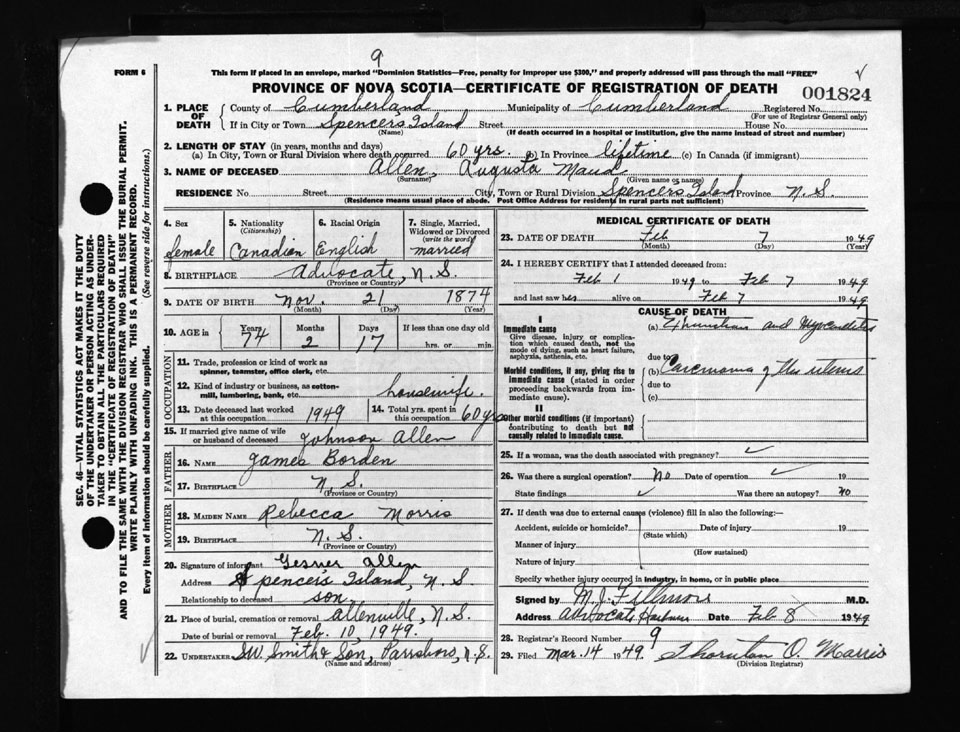 9
FORM 6
This form if placed in an envelope, marked "Dominion Statistics—Free, penalty for improper use $300," and properly addressed will pass through the mail "FREE"
PROVINCE OF NOVA SCOTIA—CERTIFICATE OF REGISTRATION OF DEATH
001824
1. PLACE OF DEATH County of Cumberland Municipality of Cumberland Registered No.
(For use of Registrar General only)
If in City or Town Spencer's Island Street House No.
(Name) (If death occurred in a hospital or institution, give the name instead of street and number)
2. LENGTH OF STAY (in years, months and days)
(a) In City, Town or Rural Division where death occurred 60 yrs. (b) In Province lifetime (c) In Canada (if immigrant)
3. NAME OF DECEASED Allen, Augusta Maud
(Surname) (Given name or names)
RESIDENCE No. Street City, Town or Rural Division Spencers Island Province N.S.
(Residence means usual place of abode. Post Office Address for residents in rural parts not sufficient)
4. Sex female
5. Nationality (Citizenship) Canadian
6. Racial Origin English
7. Single, Married, Widowed or Divorced (write the word) married
8. BIRTHPLACE Advocate, N.S.
(Province or Country)
9. DATE OF BIRTH Nov. 21 1874
(Month) (Day) (Year)
10. AGE in Years 74 Months 2 Days 17 If less than one day old hrs. or min.
OCCUPATION
11. Trade, profession or kind of work as spinner, teamster, office clerk, etc.
12. Kind of industry or business, as cotton-mill, lumbering, bank, etc. housewife.
13. Date deceased last worked at this occupation 1949 14. Total yrs. spent in this occupation 60 yrs
15. If married give name of wife or husband of deceased Johnson Allen
FATHER
16. NAME James Borden
17. BIRTHPLACE N.S.
(Province or Country)
MOTHER
18. MAIDEN NAME Rebecca Morris
19. BIRTHPLACE N.S.
(Province or Country)
20. Signature of informant Gesner Allen
Address Spencer's Island, N.S
Relationship to deceased son.
21. Place of burial, cremation or removal Allenville, N.S.
Date of burial or removal Feb. 10, 1949.
22. UNDERTAKER Smith & Son, Parrsboro, N.S.
(Name and address)
MEDICAL CERTIFICATE OF DEATH
23. DATE OF DEATH Feb 7 1949
(Month) (Day) (Year)
24. I HEREBY CERTIFY that I attended deceased from:
Feb 1 1949 to Feb 7 1949
and last saw her alive on Feb 7 1949
CAUSE OF DEATH
I
Immediate cause
Give disease, injury or complication which caused death, not the mode of dying, such as heart failure, asphyxia, asthenia, etc.
(a) and Myocarditis
due to
Morbid conditions, if any, giving rise to immediate cause (stated in order proceeding backwards from immediate cause).
(b) Carcinoma of the uterus
due to
(c)
II
Other morbid conditions (if important) contributing to death but not causally related to immediate cause.
25. If a woman, was the death associated with pregnancy? ✓
26. Was there a surgical operation? No Date of operation ✓ 19
State findings ✓ Was there an autopsy? no
27. If death was due to external causes (violence) fill in also the following:—
Accident, suicide or homicide? Date of injury 19
(State which)
Manner of injury
(How sustained)
Nature of injury
Specify whether injury occurred in industry, in home, or in public place
Signed by M. J. Fillmore M.D.
Address Advocate Harbour Date Feb 8 1949
28. Registrar's Record Number 9
29. Filed Mar. 14 1949 Thornton O. Morris
(Division Registrar)
SEC. 46—VITAL STATISTICS ACT MAKES IT THE DUTY
OF THE UNDERTAKER OR PERSON ACTING AS UNDER-
TAKER TO OBTAIN ALL THE PARTICULARS REQUIRED
IN THE "CERTIFICATE OF REGISTRATION OF DEATH"
AND TO FILE THE SAME WITH THE DIVISION REGISTRAR WHO SHALL ISSUE THE BURIAL PERMIT.
WRITE PLAINLY WITH UNFADING INK. THIS IS A PERMANENT RECORD.
Every item of information should be carefully supplied. (See reverse side for instructions.)